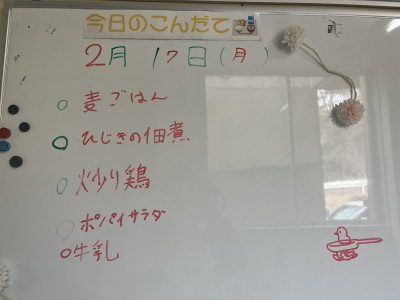 今日のこんだて
2月 17日(月)
○ 麦ごはん
○ ひじきの佃煮
○ 炒り鶏
○ ポパイサラダ
○牛乳